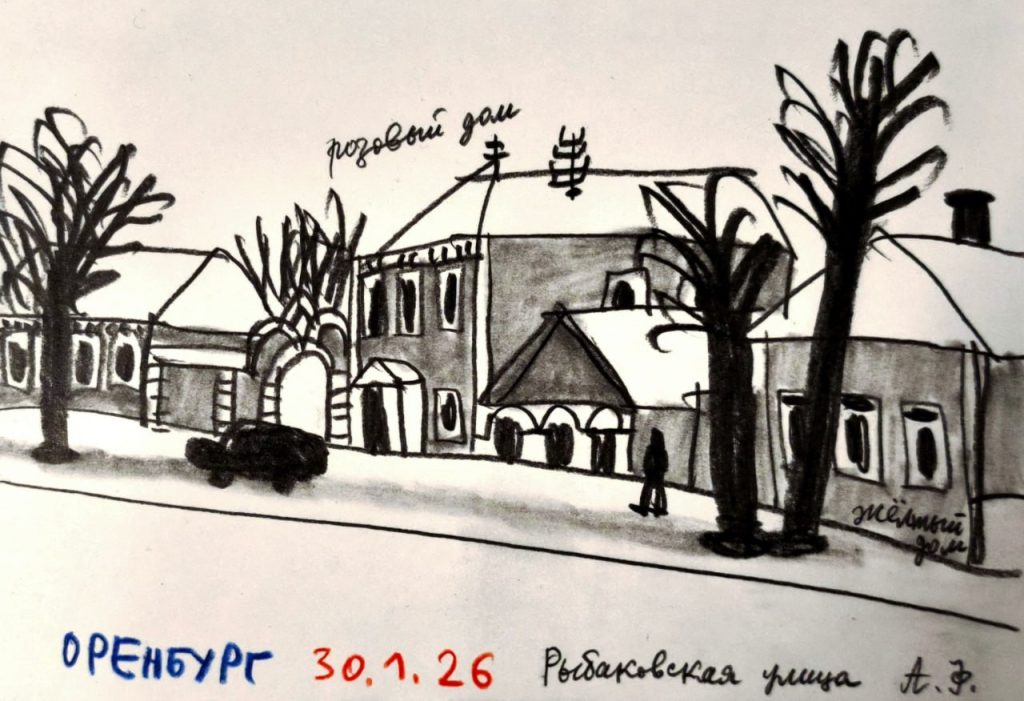 розовый дом
жёлтый
дом
ОРЕНБУРГ 30.1.26 Рыбаковская улица А.Ф.